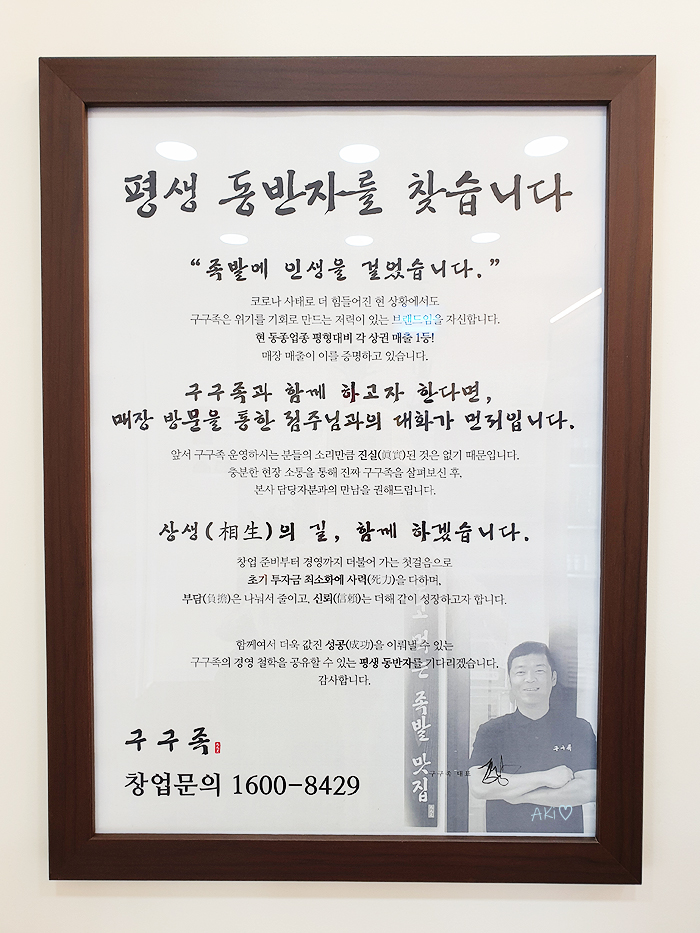 평생 동반자를 찾습니다
“족발에 인생을 걸었습니다.”
코로나 사태로 더 힘들어진 현 상황에서도
구구족은 위기를 기회로 만드는 저력이 있는 브랜드임을 자신합니다.
현 동종업종 평형대비 각 상권 매출 1등!
매장 매출이 이를 증명하고 있습니다.
구구족과 함께 하고자 한다면,
매장 방문을 통한 점주님과의 대화가 먼저입니다.
앞서 구구족 운영하시는 분들의 소리만큼 진실(眞實)된 것은 없기 때문입니다.
충분한 현장 소통을 통해 진짜 구구족을 살펴보신 후,
본사 담당자분과의 만남을 권해드립니다.
상생(相生)의 길, 함께 하겠습니다.
창업 준비부터 경영까지 더불어 가는 첫걸음으로
초기 투자금 최소화에 사력(死力)을 다하며,
부담(負擔)은 나눠서 줄이고, 신뢰(信賴)는 더해 같이 성장하고자 합니다.
함께여서 더욱 값진 성공(成功)을 이뤄낼 수 있는
구구족의 경영 철학을 공유할 수 있는 평생 동반자를 기다리겠습니다.
감사합니다.
고 먹는 족발 맛집
구구족
구구족
구구족 대표
창업문의 1600-8429
AKI♡